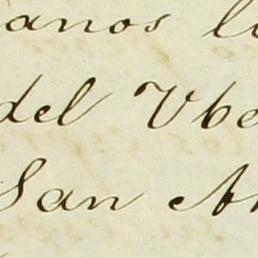 anos l
del Vbe
San An